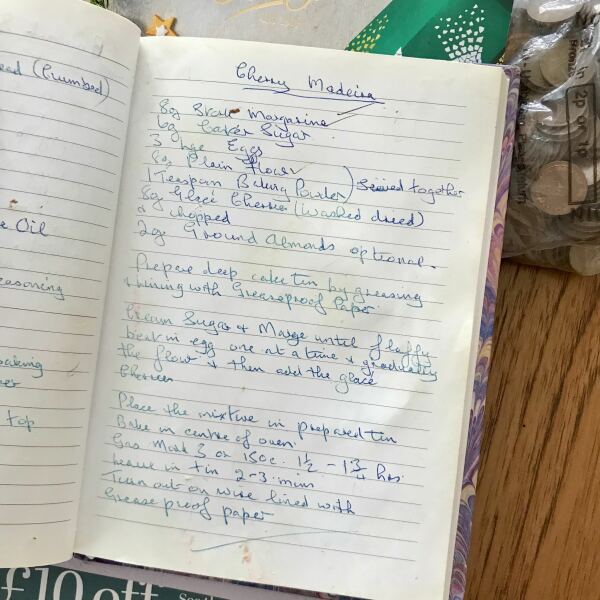 eed (Crumbed)
e Oil
easoning
oaking
top
Cherry Madeira
8oz Stork Margarine
6oz Caster Sugar
3 lge Eggs
8oz Plain Flour
1 Teaspoon Baking Powder) Seived together
8oz Glace Cherries (washed dried)
& chopped
2oz Ground Almonds optional.
Prepare deep cake tin by greasing
& lining with Greaseproof Paper.
Cream Sugar & Marge until fluffy
beat in egg one at a time & gradually
the flour & then add the glace
Cherries
Place the mixture in prepared tin
Bake in centre of oven.
Gas Mark 3 or 150c. 1½ - 1¾ hrs.
Leave in tin 2-3 min
Turn out on wire lined with
Grease proof paper
£10 off
Bronze
in 2p or 1p